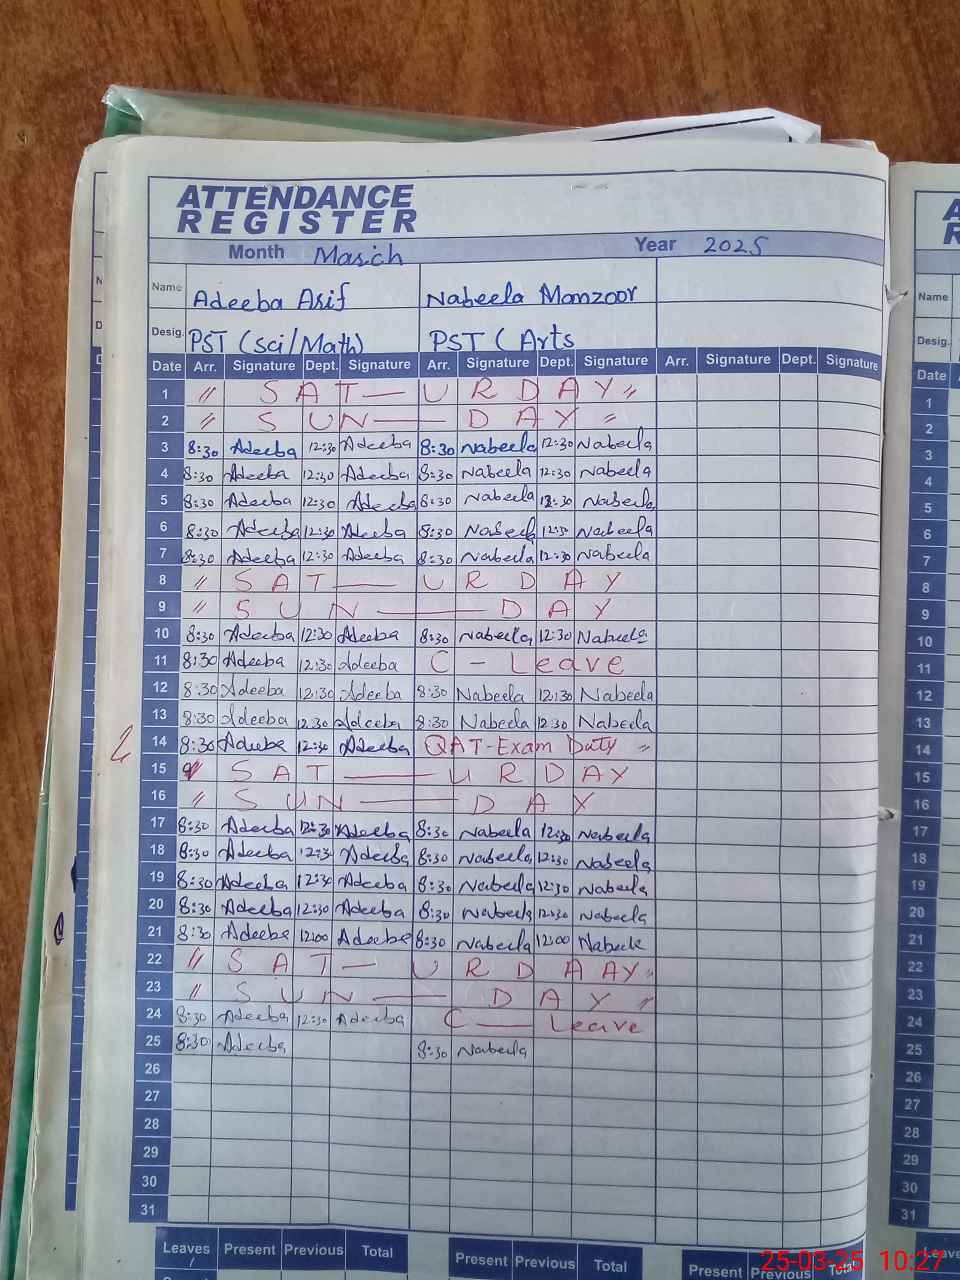 ATTENDANCE
REGISTER
Month March Year 2025
Name Adeeba Asif Nabeela Manzoor
Desig. PST (Sci/Math) PST (Arts
Date Arr. Signature Dept. Signature Arr. Signature Dept. Signature Arr. Signature Dept. Signature
1 " SAT — URDAY "
2 " SUN — DAY "
3 8:30 Adeeba 12:30 Adeeba 8:30 Nabeela 12:30 Nabeela
4 8:30 Adeeba 12:30 Adeeba 8:30 Nabeela 12:30 Nabeela
5 8:30 Adeeba 12:30 Adeeba 8:30 Nabeela 12:30 Nabeela
6 8:30 Adeeba 12:30 Adeeba 8:30 Nabeela 12:30 Nabeela
7 8:30 Adeeba 12:30 Adeeba 8:30 Nabeela 12:30 Nabeela
8 " SAT — URDAY
9 " SUN — DAY
10 8:30 Adeeba 12:30 Adeeba 8:30 Nabeela 12:30 Nabeela
11 8:30 Adeeba 12:30 Adeeba C - Leave
12 8:30 Adeeba 12:30 Adeeba 8:30 Nabeela 12:30 Nabeela
13 8:30 Adeeba 12:30 Adeeba 8:30 Nabeela 12:30 Nabeela
14 8:30 Adeeba 12:30 Adeeba QAT-Exam Duty "
15 SAT — URDAY
16 " SUN — DAY
17 8:30 Adeeba 12:30 Adeeba 8:30 Nabeela 12:30 Nabeela
18 8:30 Adeeba 12:3 Adeeba 8:30 Nabeela 12:30 Nabeela
19 8:30 Adeeba 12:30 Adeeba 8:30 Nabeela 12:30 Nabeela
20 8:30 Adeeba 12:30 Adeeba 8:30 Nabeela 12:30 Nabeela
21 8:30 Adeeba 12:00 Adeeba 8:30 Nabeela 12:00 Nabeela
22 " SAT — URDAAY "
23 " SUN — DAY "
24 8:30 Adeeba 12:30 Adeeba C — Leave
25 8:30 Adeeba 8:30 Nabeela
26
27
28
29
30
31
Leaves / Present Previous Total Present Previous Total Present Previous Total
A
R
Name
Desig.
Date
1
2
3
4
5
6
7
8
9
10
11
12
13
14
15
16
17
18
19
20
21
22
23
24
25
26
27
28
29
30
31
Leave
25-03-25 10:27